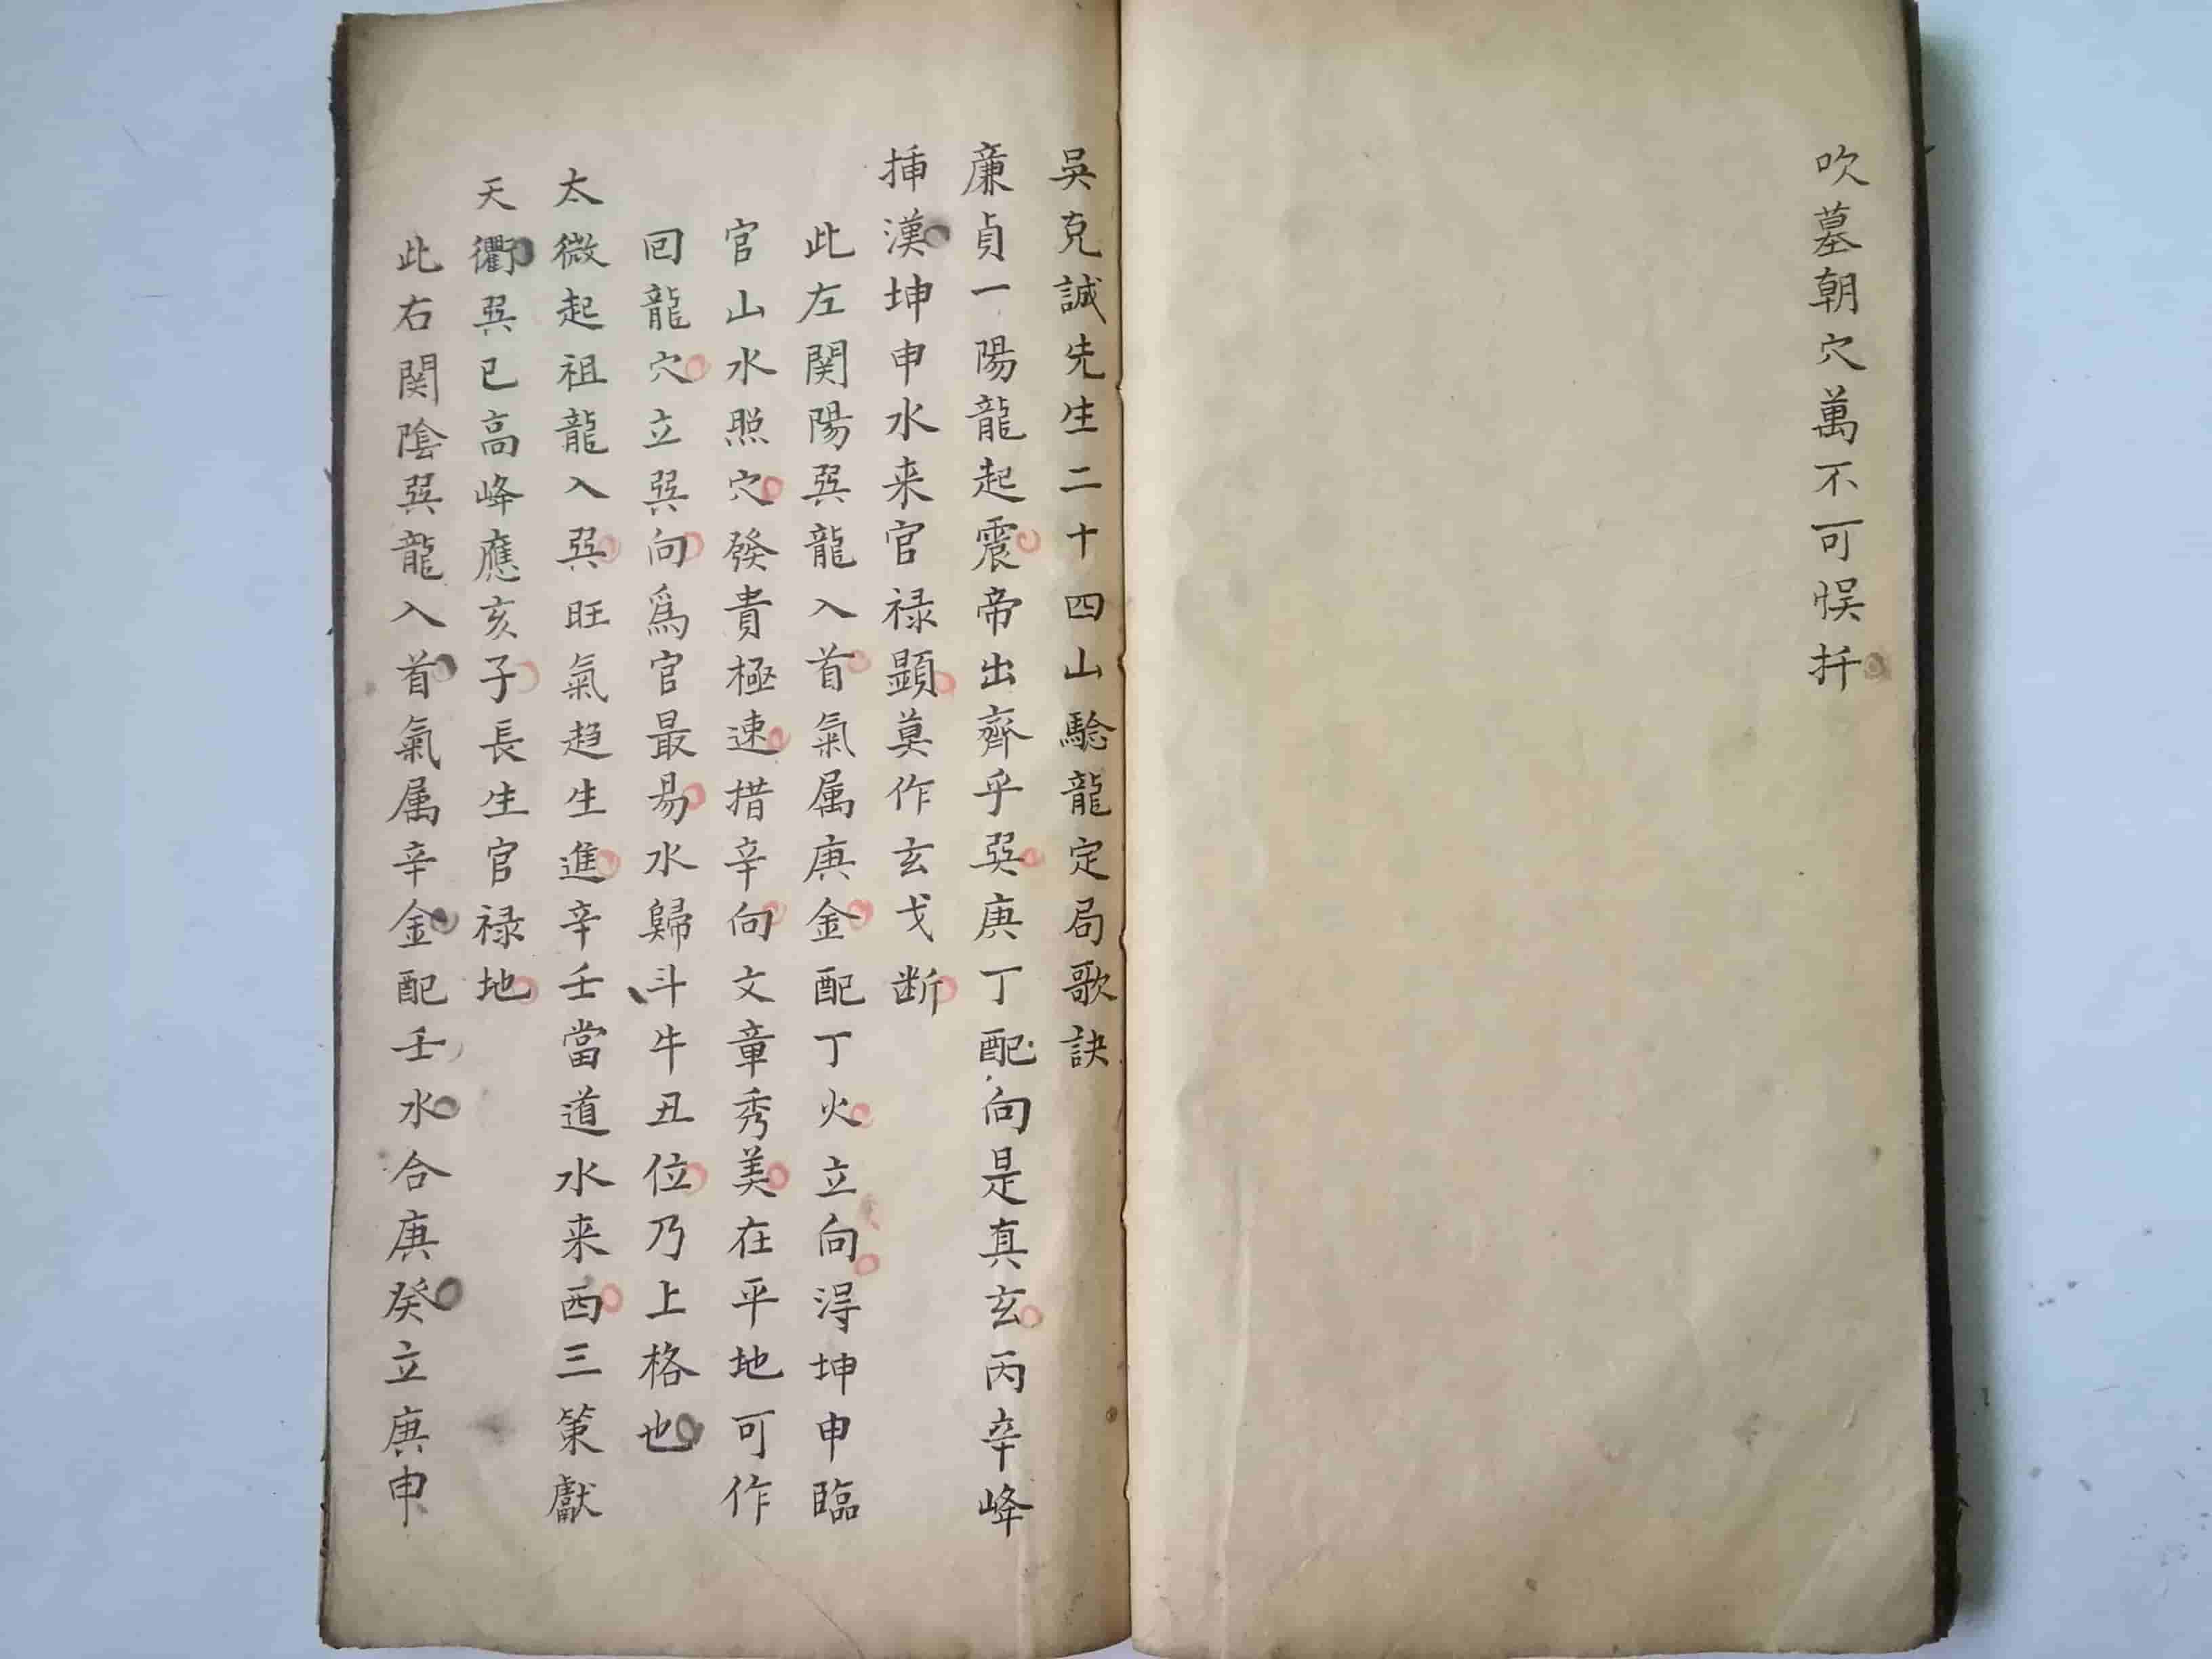 吹墓朝穴萬不可悮扦
吳克誠先生二十四山騐龍定局歌訣
廉貞一陽龍起震帝出齊乎巽庚丁配向是真玄丙辛峰
挿漢坤申水来官禄顕莫作玄戈断
此左関陽巽龍入首氣属庚金配丁火立向淂坤申臨
官山水照穴發貴極速措辛向文章秀美在平地可作
回龍穴立巽向爲官最易水歸斗牛丑位乃上格也
太微起祖龍入巽旺氣趋生進辛壬當道水来酉三策獻
天衢巽巳高峰應亥子長生官禄地
此右関陰巽龍入首氣属辛金配壬水合庚癸立庚申